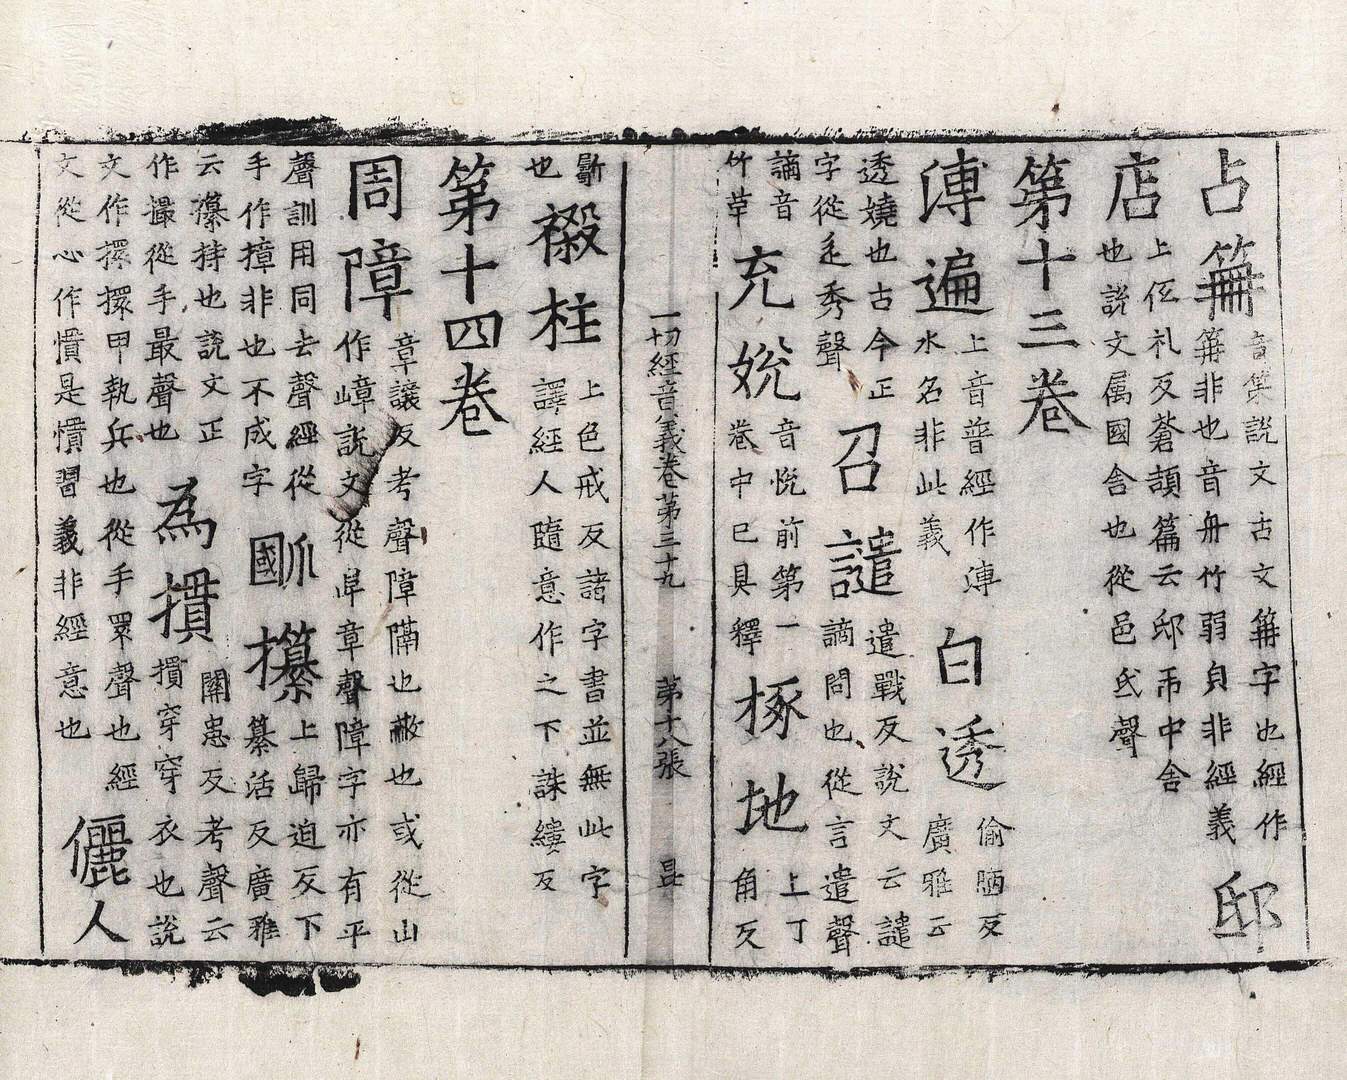 占
音策說文古文䇲字也經作
䇲非也音冊竹弱貞非經義
邸
店
上低礼反蒼頡篇云邸市中舍
也說文属國舍也從邑氐聲
第十三卷
溥遍
上音普經作溥
水名非此義
白透
偷反
廣雅云
透嬈也古今正
字從辵秀聲
召譴
遣戰反說文云譴
謫問也從言遣聲
謫音
竹革
充娧
音悅前第一
卷中已具釋
椓地
上丁
角反
一切經音義卷第三十九 第十八張 昆
斸
也
柱
上色戒反諸字書並無此字
譯經人隨意作之下誅縷反
第十四卷
周障
章讓反考聲障隔也蔽也或從山
作嶂說文從阜章聲障字亦有平
聲訓用同去聲經從
手作撞非也不成字
爴攥
上歸迫反下
纂活反廣雅
云攥持也說文正
作撮從手最聲也
為摜
關患反考聲云
摜穿穿衣也說
文作擐擐甲執兵也從手睘聲也經
文從心作慣是慣習義非經意也
儷人